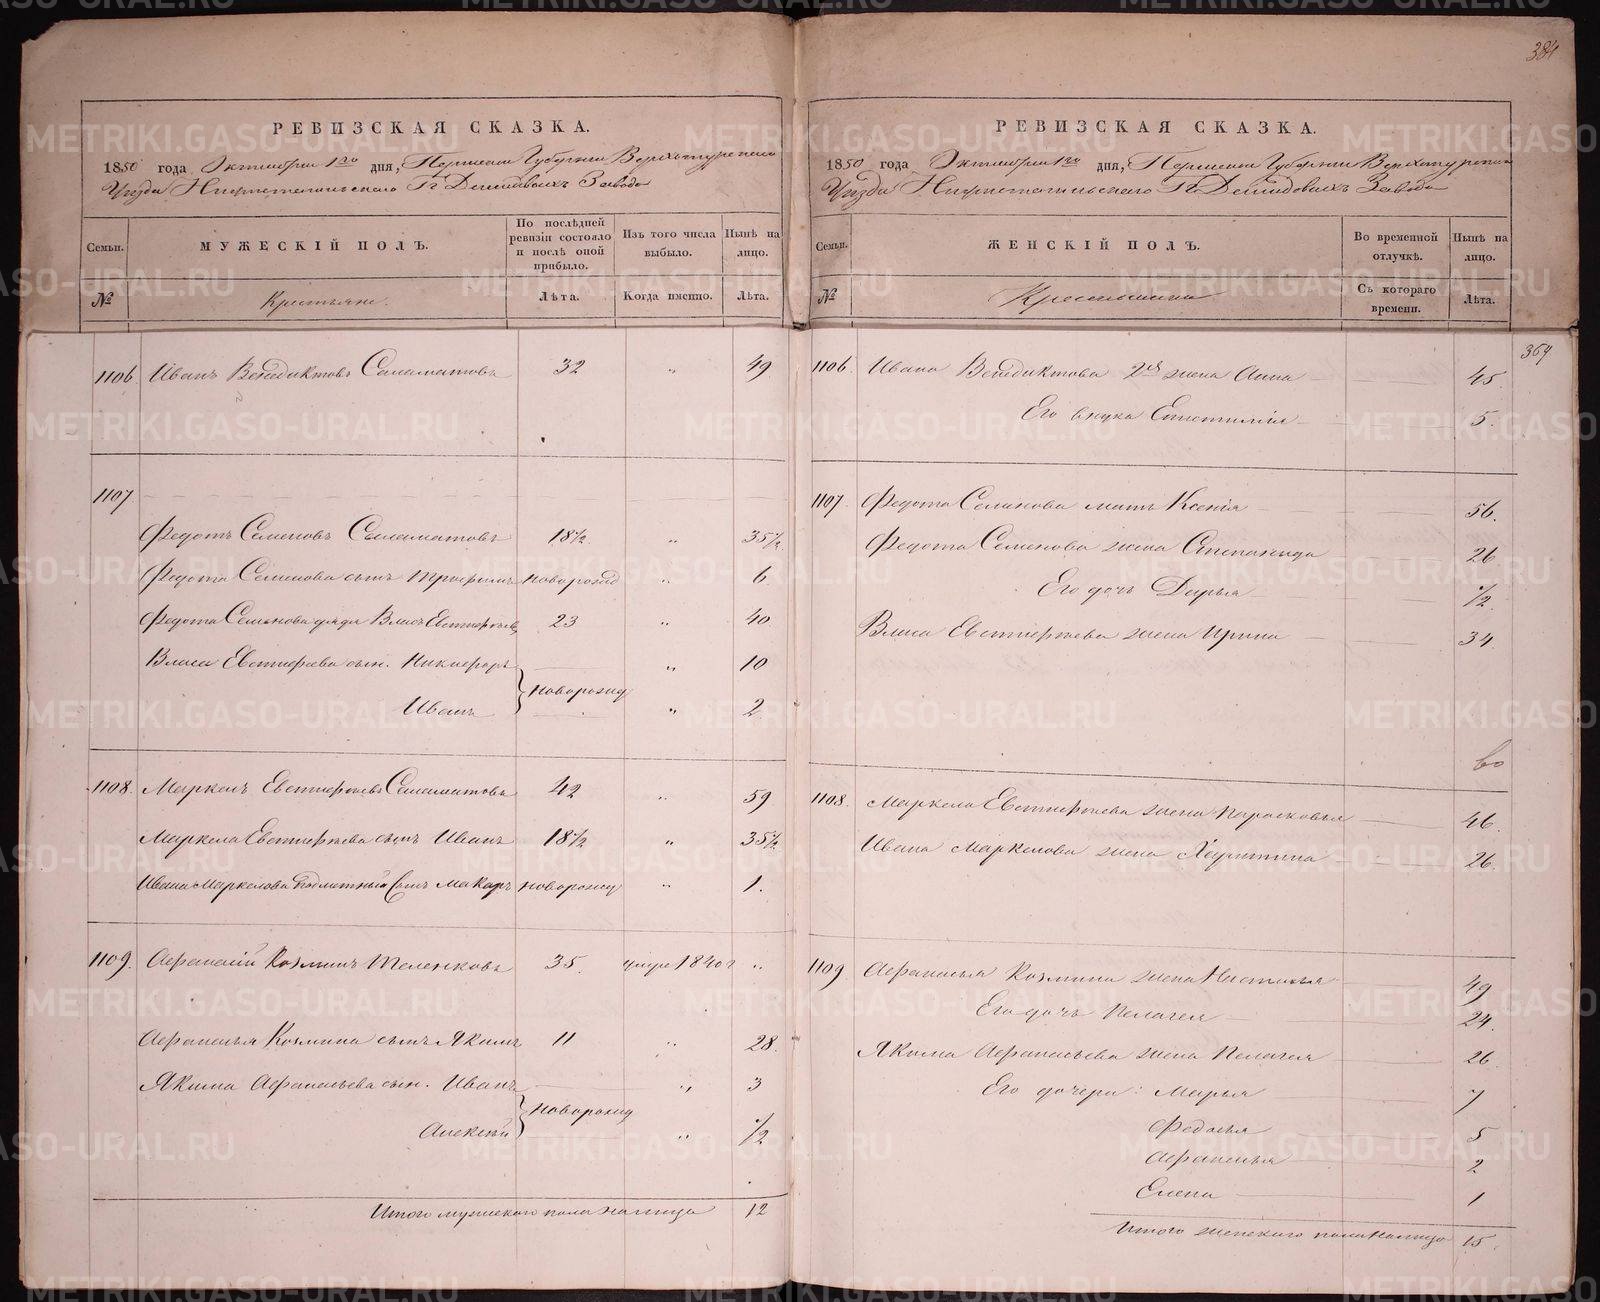 384
РЕВИЗСКАЯ СКАЗКА.
1850 года Октября 1го дня, Пермской Губернии Верхотурскаго
Уезда Нижнетагильскаго Г. Демидовыхъ Завода
Семьи. МУЖЕСКІЙ ПОЛЪ. По послѣдней ревизіи состояло и послѣ оной прибыло. Изъ того числа выбыло. Нынѣ на лицо.
№ Крестьяне. Лѣта. Когда именно. Лѣта.
1106 Иванъ Венедиктовъ Саламатовъ 32 " 49
1107.
Федотъ Семеновъ Саламатовъ 18½ " 35½
Федота Семенова сынъ Трофимъ новорожд " 6
Федота Семенова дядя Власъ Евстигнѣевъ 23 " 40
Власа Евстигнѣева сын. Никифоръ " 10
новорожд
Иванъ " 2
1108. Маркелъ Евстигнѣевъ Саламатовъ 42 " 59
Маркела Евстигнѣева сынъ Иванъ 18½ " 35½
Ивана Маркелова Сынъ Макаръ новорожд " 1.
1109. Афанасій Козминъ Теленковъ 35. умре 1840 г "
Афанасья Козмина сынъ Якимъ 11 " 28.
Якима Афанасьева сын. Иванъ " 3
новорожд
Алексѣй " ½
Итого мужескаго пола налицо 12
РЕВИЗСКАЯ СКАЗКА.
1850 года Октября 1го дня, Пермской Губернии Верхотурскаго
Уезда Нижнетагильскаго Г. Демидовыхъ Завода
Семьи. ЖЕНСКІЙ ПОЛЪ. Во временной отлучкѣ. Нынѣ на лицо.
№ Крестьянки Съ котораго времени. Лѣта.
364
1106 Ивана Венедиктова 2я жена Анна 45.
Его внука Епистимія 5.
1107. Федота Семенова мать Ксенія 56.
Федота Семенова жена Степанида 26
Его дочь Дарья ½.
Власа Евстигнѣева жена Ирина 34.
1108. Маркела Евстигнѣева жена Парасковья 46.
Ивана Маркелова жена 26.
1109. Афанасья Козмина жена Настасья 49
Его дочь Пелагея 24.
Якима Афанасьева жена Пелагея 26
Его дочери: Марья 7
Федосья 5
Афанасья 2
Елена 1
Итого женскаго пола налицо 15.
METRIKI.GASO-URAL.RU